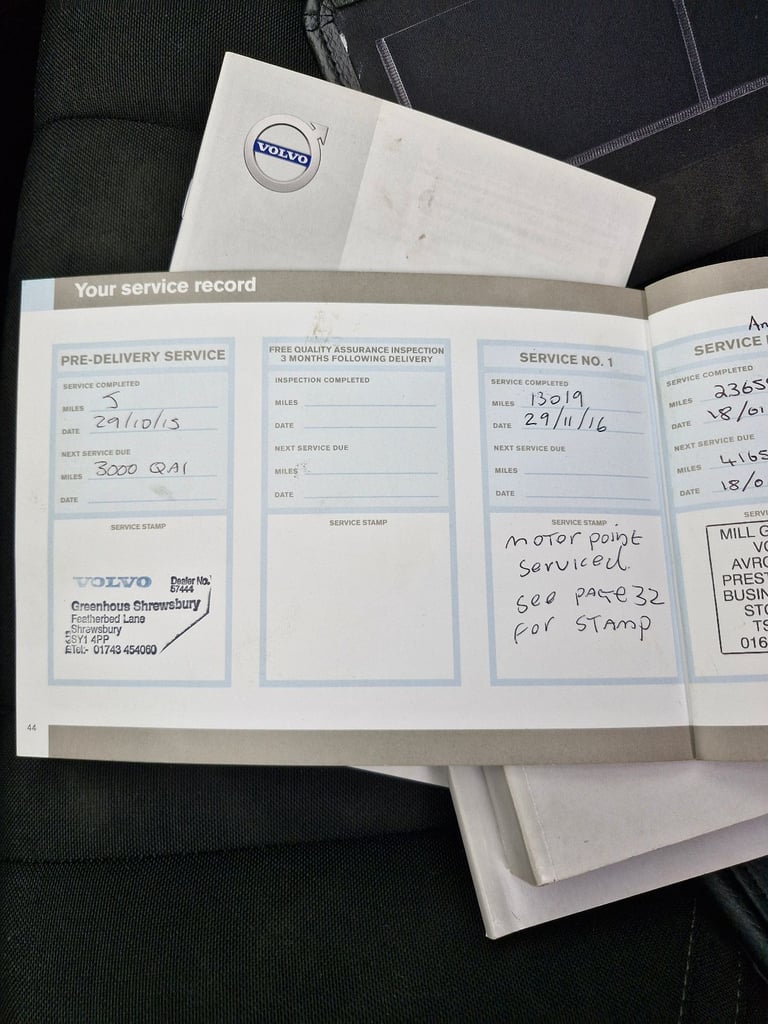 VOLVO
Your service record
PRE-DELIVERY SERVICE
SERVICE COMPLETED
MILES 5
DATE 29/10/15
NEXT SERVICE DUE
MILES 3000 QAI
DATE
SERVICE STAMP
VOLVO Dealer No.
57444
Greenhous Shrewsbury
Featherbed Lane
Shrewsbury
SY1 4PP
Tel:- 01743 454060
FREE QUALITY ASSURANCE INSPECTION
3 MONTHS FOLLOWING DELIVERY
INSPECTION COMPLETED
MILES
DATE
NEXT SERVICE DUE
MILES
DATE
SERVICE STAMP
SERVICE NO. 1
SERVICE COMPLETED
MILES 13019
DATE 29/11/16
NEXT SERVICE DUE
MILES
DATE
SERVICE STAMP
motor point
serviced.
see PAGE 32
for STAMP
An
SERVICE
SERVICE COMPLETED
MILES 2365
DATE 18/01
NEXT SERVICE DUE
MILES 4165
DATE 18/0
SERVI
MILL G
VO
AVRO
PREST
BUSIN
STO
TS
016
44